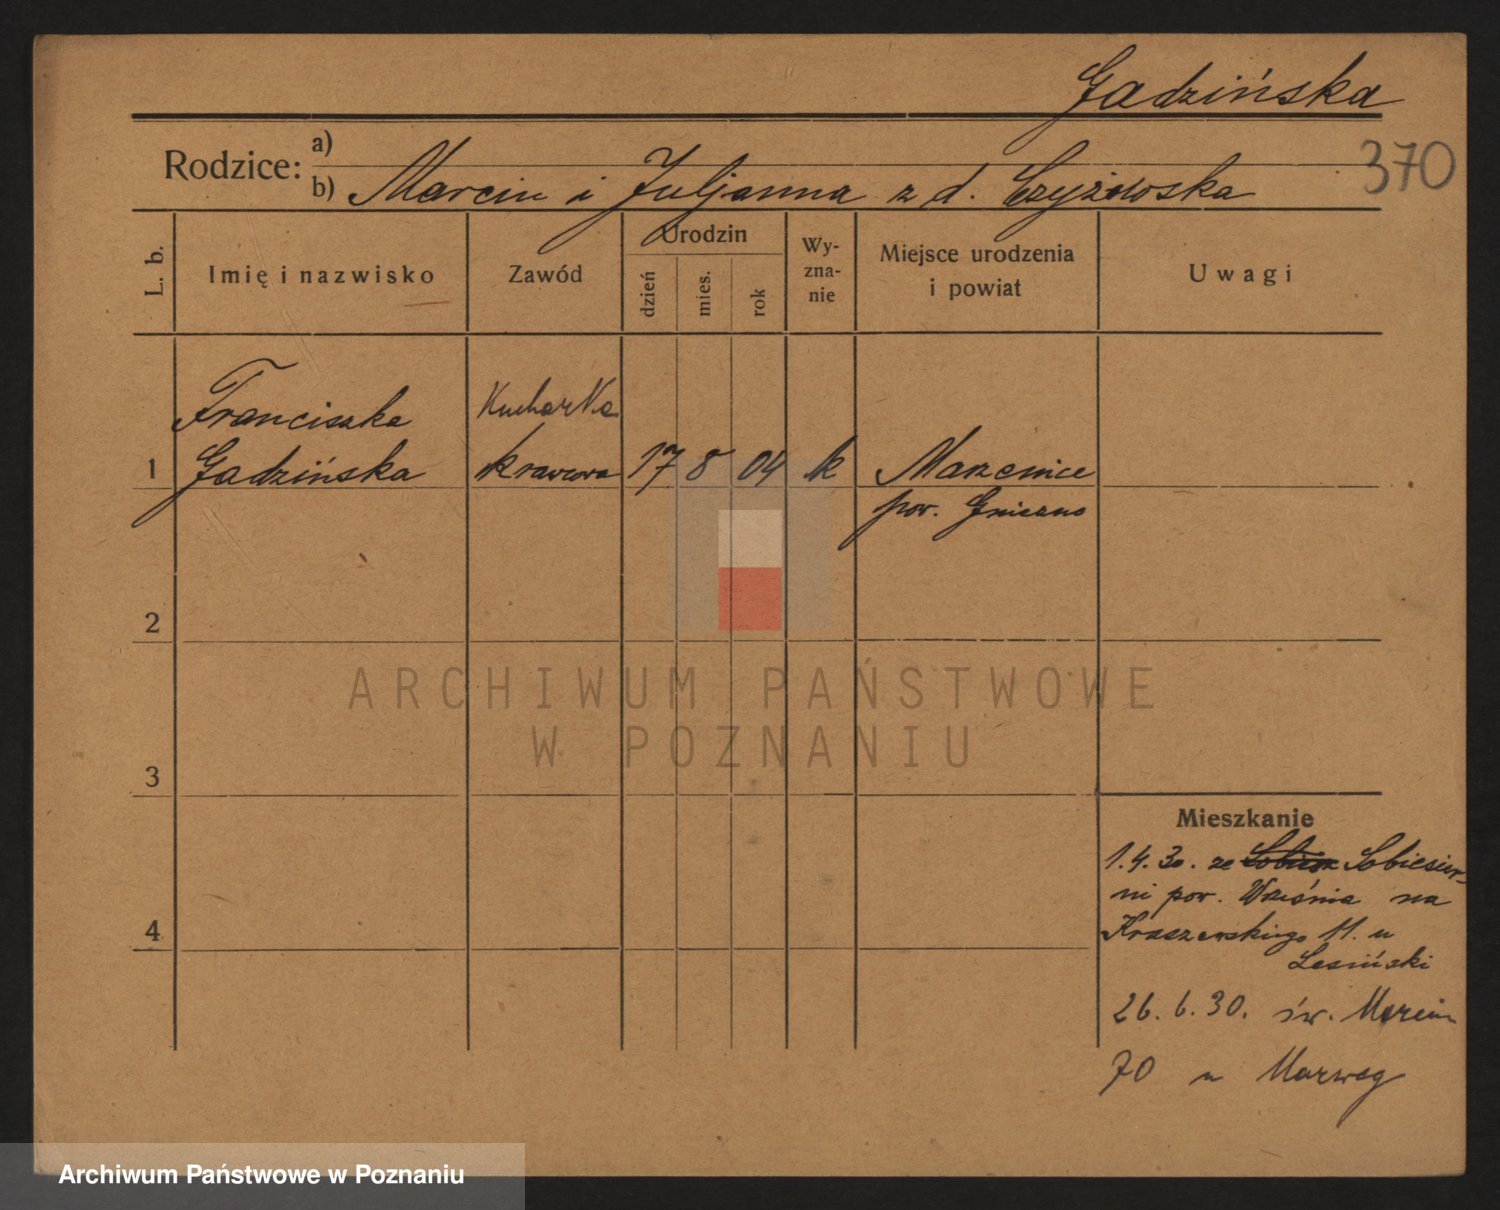 Gadzińska
370
Rodzice: a)
b) Marcin i Juljanna z d. Czyżewska
L. b.
Imię i nazwisko
Zawód
Urodzin
dzień
mies.
rok
Wy-
zna-
nie
Miejsce urodzenia
i powiat
Uwagi
Franciszka Kucharka
1 Gadzińska krawcowa 17 8 04 k Marzenice
pow. Gniezno
2
ARCHIWUM PAŃSTWOWE
W POZNANIU
3
Mieszkanie
1.4.30. ze Sobiesier-
ni pow. Września na
4
Kraszewskiego 11. u
Lesiński
26.6.30. św. Marcin
70 u Marweg
Archiwum Państwowe w Poznaniu